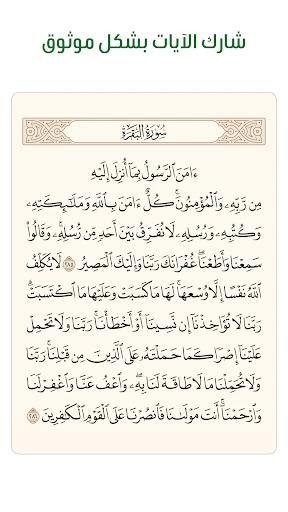 شارك الآيات بشكل موثوق
سُورَةُ البَقَرَةِ
ءَامَنَ ٱلرَّسُولُ بِمَآ أُنزِلَ إِلَيْهِ
مِن رَّبِّهِۦ وَٱلْمُؤْمِنُونَ ۚ كُلٌّ ءَامَنَ بِٱللَّهِ وَمَلَـٰٓئِكَتِهِۦ
وَكُتُبِهِۦ وَرُسُلِهِۦ لَا نُفَرِّقُ بَيْنَ أَحَدٍ مِّن رُّسُلِهِۦ ۚ وَقَالُوا۟
سَمِعْنَا وَأَطَعْنَا ۖ غُفْرَانَكَ رَبَّنَا وَإِلَيْكَ ٱلْمَصِيرُ ٢٨٥ لَا يُكَلِّفُ
ٱللَّهُ نَفْسًا إِلَّا وُسْعَهَا ۚ لَهَا مَا كَسَبَتْ وَعَلَيْهَا مَا ٱكْتَسَبَتْ ۗ
رَبَّنَا لَا تُؤَاخِذْنَآ إِن نَّسِينَآ أَوْ أَخْطَأْنَا ۚ رَبَّنَا وَلَا تَحْمِلْ
عَلَيْنَآ إِصْرًا كَمَا حَمَلْتَهُۥ عَلَى ٱلَّذِينَ مِن قَبْلِنَا ۚ رَبَّنَا
وَلَا تُحَمِّلْنَا مَا لَا طَاقَةَ لَنَا بِهِۦ ۖ وَٱعْفُ عَنَّا وَٱغْفِرْ لَنَا
وَٱرْحَمْنَآ ۚ أَنتَ مَوْلَىٰنَا فَٱنصُرْنَا عَلَى ٱلْقَوْمِ ٱلْكَـٰفِرِينَ ٢٨٦